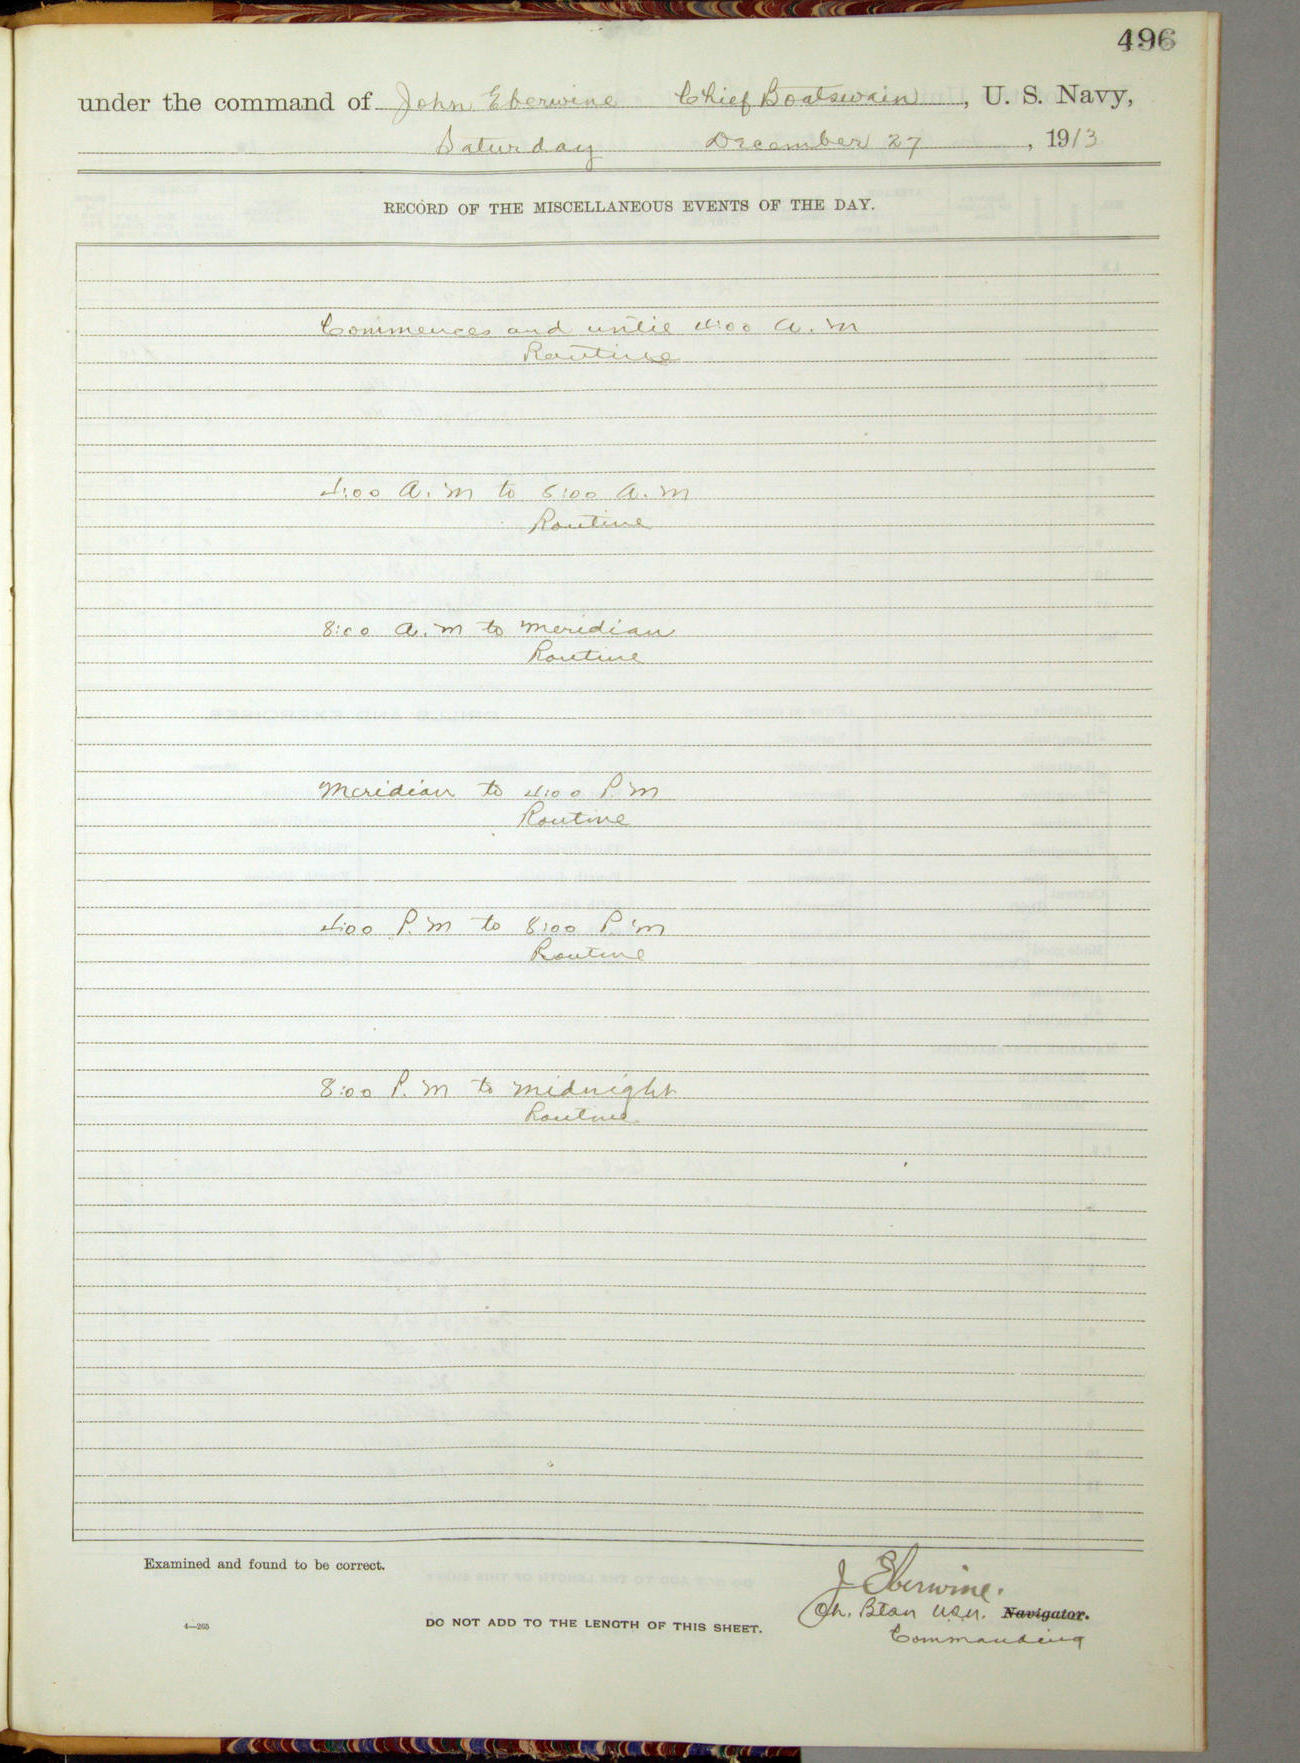 496
under the command of John Eberwine Chief Boatswain, U. S. Navy,
Saturday December 27, 1913
RECORD OF THE MISCELLANEOUS EVENTS OF THE DAY.
Commences and until 4:00 A. M
Routine
4:00 A. M to 8:00 A. M
Routine
8:00 A. M to Meridian
Routine
Meridian to 4:00 P. M
Routine
4:00 P. M to 8:00 P. M
Routine
8:00 P. M to Midnight
Routine
Examined and found to be correct.
J Eberwine.
Ch. Btsn U.S.N. Navigator.
Commanding
4—265
DO NOT ADD TO THE LENGTH OF THIS SHEET.